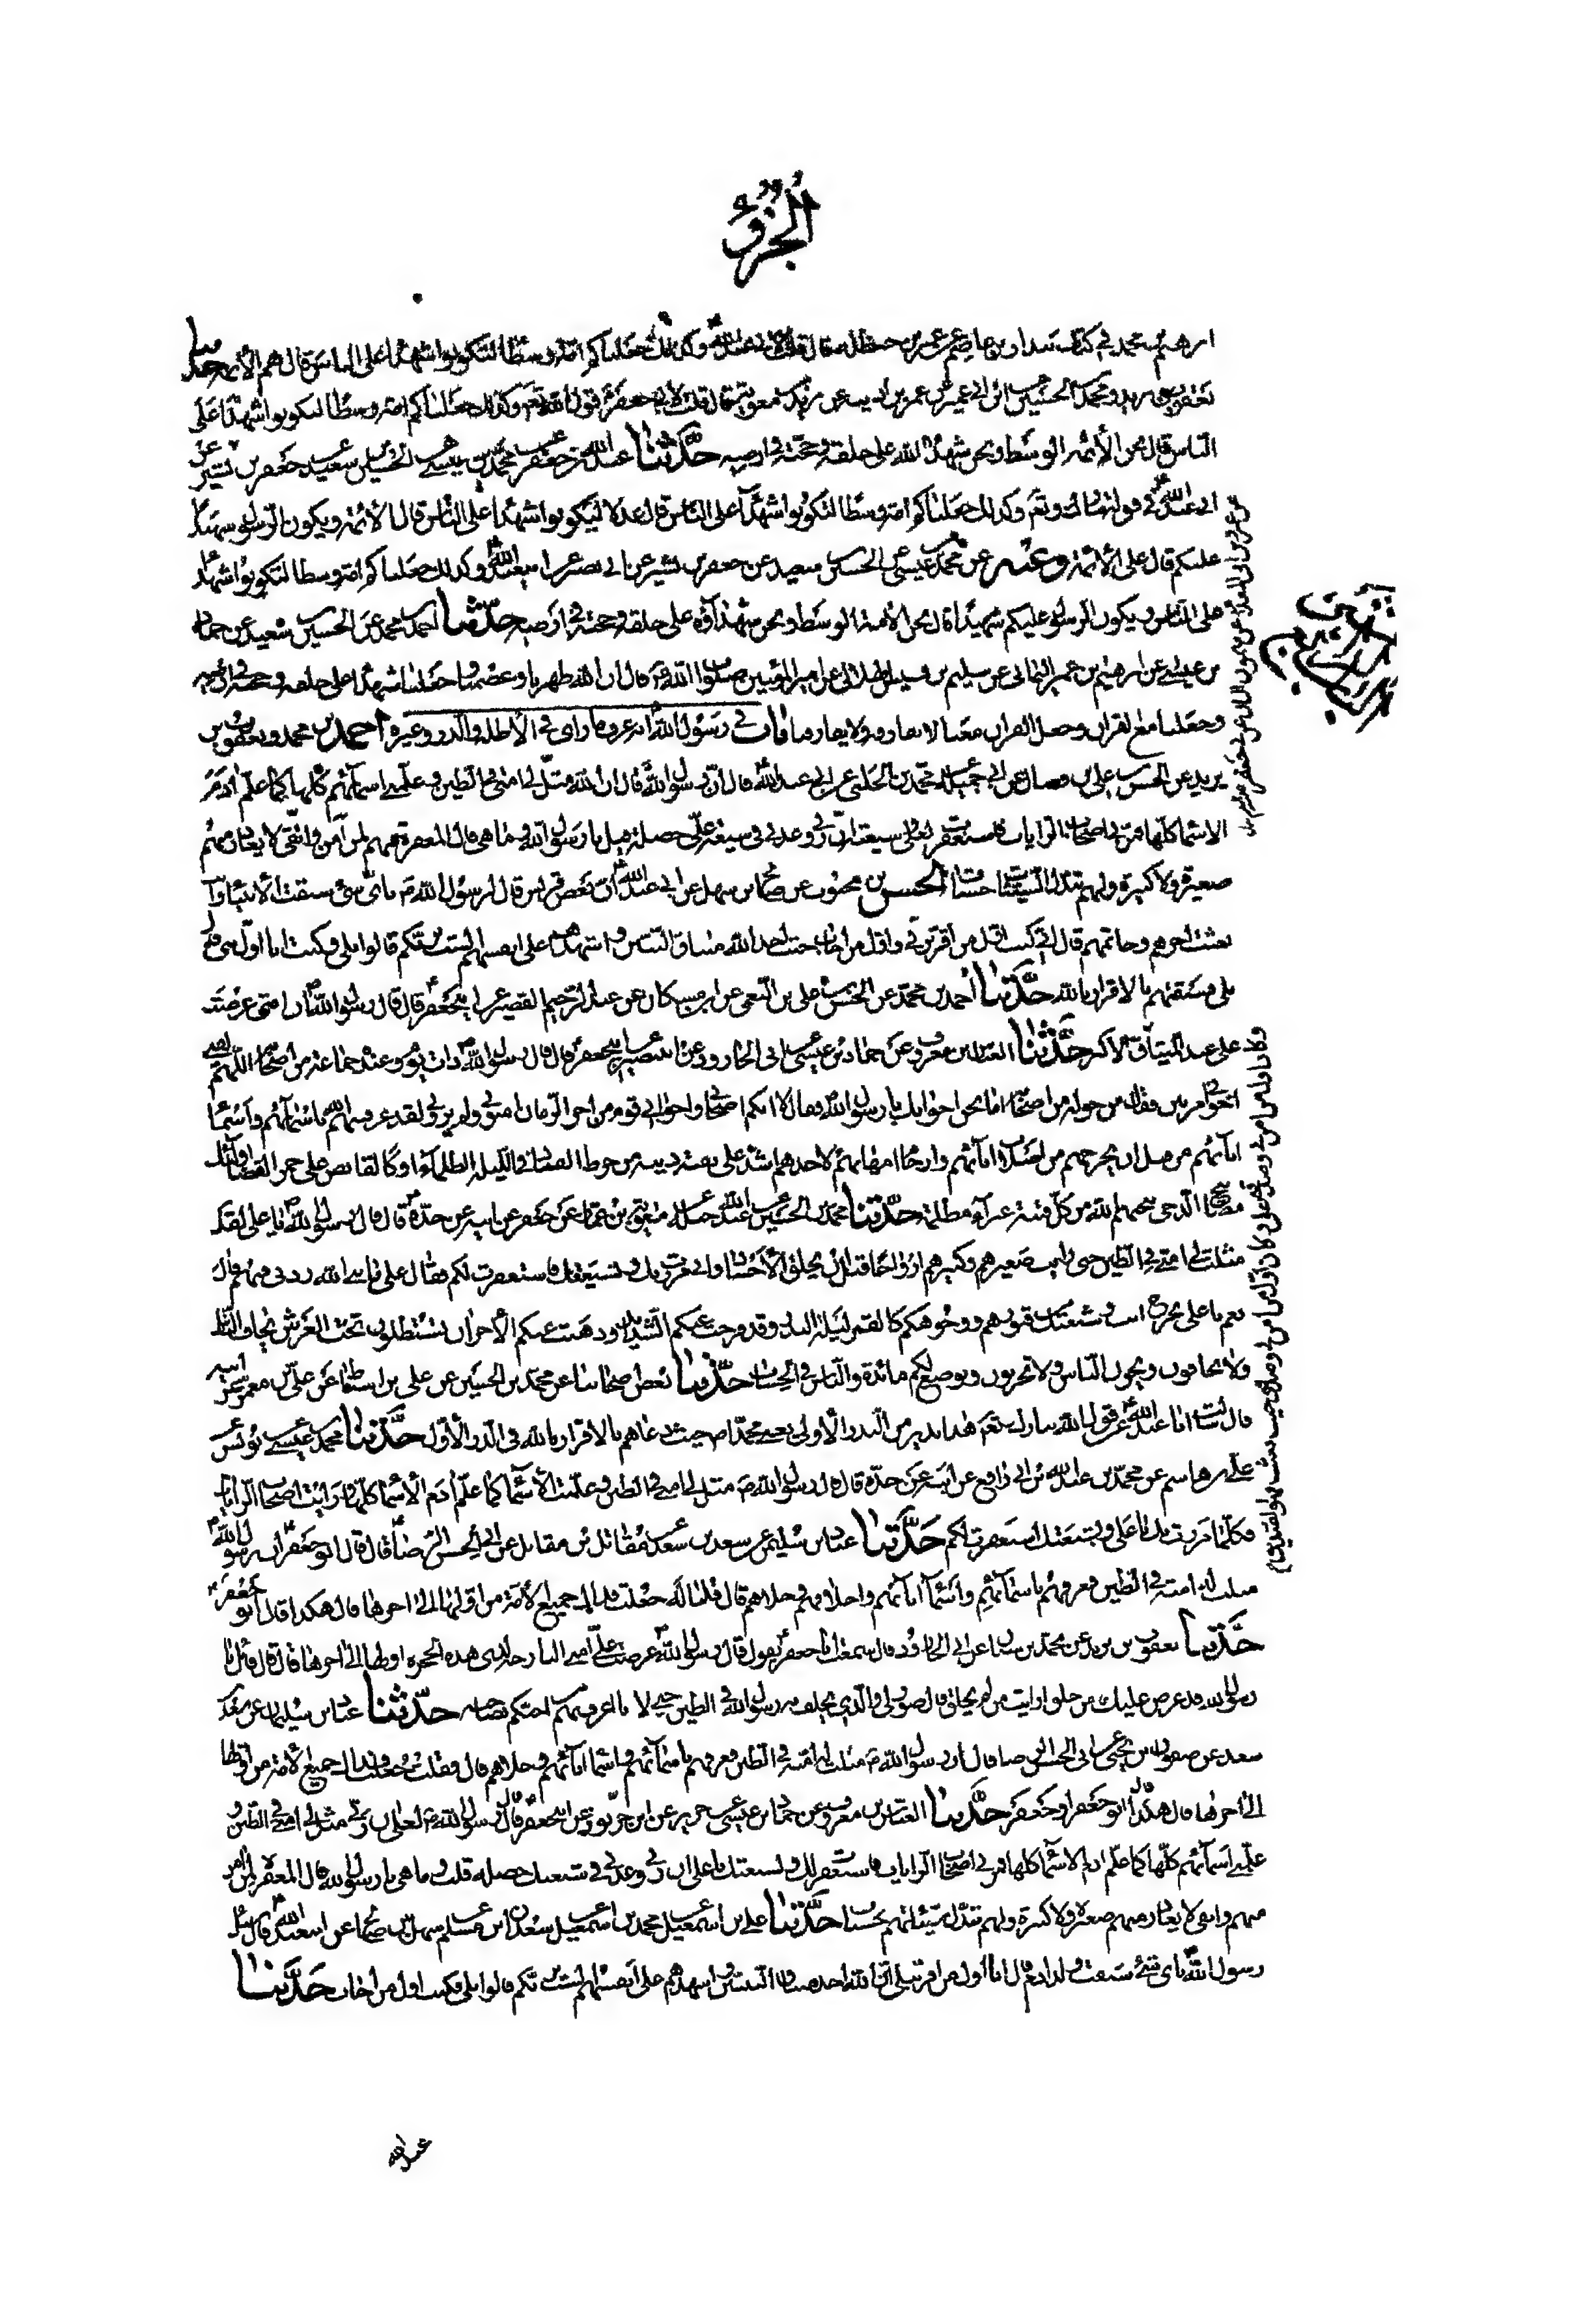 الجزؤ
ابرهيم بن محمد في كتاب بندار بن عاصم عن عمر بن حنظلة قال قلت لابي عبد الله وكذلك جعلناكم امة وسطا لتكونوا شهداء على الناس قال هم الأئمة حدثنا
يعقوب بن يزيد ومحمد بن الحسين عن ابن ابي عمير عن عمر بن اذينة عن بريد بن معوية قال قلت لابي جعفر قول الله تعالى وكذلك جعلناكم امة وسطا لتكونوا شهداء على
الناس قال نحن الأئمة الوسط ونحن شهداء الله على خلقه وحجته في ارضه حدثنا عبد الله بن جعفر عن محمد بن عيسى عن الحسين بن سعيد عن جعفر بن بشير عن
ابي عبد الله في قول الله تبارك وتع وكذلك جعلناكم امة وسطا لتكونوا شهداء على الناس قال عدلا ليكونوا شهداء على الناس قال الأئمة ويكون الرسول شهيدا
عليكم قال على الأئمة وعنه عن محمد بن عيسى عن الحسين بن سعيد عن جعفر بن بشير عن ابي بصير عن ابي عبد الله وكذلك جعلناكم امة وسطا لتكونوا شهداء
على الناس ويكون الرسول عليكم شهيدا قال نحن الأمة الوسط ونحن شهداؤه على خلقه وحجته في ارضه حدثنا احمد بن محمد عن الحسين بن سعيد عن حماد
بن عيسى عن ابرهيم بن عمر اليماني عن سليم بن قيس الهلالي عن امير المؤمنين صلوات الله قال ان الله طهرنا وعصمنا وجعلنا شهداء على خلقه وحجته في ارضه
وجعلنا مع القران وجعل القران معنا لا نفارقه ولا يفارقنا باب في رسول الله انه عرف ما راى في الأظلة والذر وغيره احمد بن محمد ويعقوب بن
يزيد عن الحسن بن علي بن فضال عن ابي جميلة عن محمد بن الحلبي عن ابي عبد الله قال ان رسول الله قال ان الله مثل لي امتي في الطين وعلمني اسمائهم كلها كما علم آدم
الاسماء كلها فمر بي اصحاب الرايات فاستغفرت لعلي وشيعته ان ربي وعدني في شيعة علي خصلة قيل يا رسول الله وما هي قال المغفرة منهم لمن آمن واتقى لا يغادر منهم
صغيرة ولا كبيرة ولهم تبدل السيئات حسنات الحسن بن محبوب عن صالح بن سهل عن ابي عبد الله ان بعض قريش قال لرسول الله باي شيء سبقت الأنبياء وانت
بعثت اخرهم وخاتمهم قال اني كنت اول من اقر بربي واول من اجاب حيث اخذ الله ميثاق النبيين واشهدهم على انفسهم الست بربكم قالوا بلى وكنت انا اول نبي قال
بلى فسبقتهم بالاقرار بالله حدثنا احمد بن محمد عن الحسن بن علي بن النعمان عن ابن مسكان عن عبد الرحيم القصير عن ابي جعفر قال قال رسول الله ان امتي عرضت
على عند الميثاق
حدثنا العباس بن معروف عن حماد بن عيسى عن ابي الجارود عن ابي بصير عن ابي جعفر قال قال رسول الله ذات يوم وعنده جماعة من اصحابه اللهم لقني
اخواني مرتين فقال من حوله من اصحابه اما نحن اخوانك يا رسول الله فقال لا انكم اصحابي واخواني قوم من اخر الزمان امنوا بي ولم يروني لقد عرفنيهم الله باسمائهم واسماء
ابائهم من قبل ان يخرجهم من اصلاب ابائهم وارحام امهاتهم لاحدهم اشد على بقية دينه من خرط القتاد في الليلة الظلماء او كالقابض على جمر الغضا اولئك
مصابيح الدجى ينجيهم الله من كل فتنة غبراء مظلمة حدثنا محمد بن الحسين عن عبد الله بن جبلة عن معوية بن عمار عن جعفر عن ابيه عن جده قال قال رسول الله يا علي لقد
مثلت لي امتي في الطين حتى رايت صغيرهم وكبيرهم ارواحا قبل ان يخلق الأجساد واني مررت بك وبشيعتك فاستغفرت لكم فقال علي يا نبي الله زدني فيهم قال
نعم يا علي تخرج انت وشيعتك من قبوركم ووجوهكم كالقمر ليلة البدر وقد فرجت عنكم الشدائد وذهبت عنكم الأحزان تستظلون تحت العرش يخاف الناس
ولا تخافون ويحزن الناس ولا تحزنون وتوضع لكم مائدة والناس في الحساب حدثنا بعض اصحابنا عن محمد بن الحسين عن علي بن اسباط عن علي بن معمر عن ابيه
قال سئلت ابا عبد الله عن قول الله تبارك وتعم هذا نذير من النذر الأولى يعني محمدا حيث دعاهم بالاقرار بالله في الذر الأول حدثنا محمد بن عيسى عن يونس عن
علي بن هاشم عن محمد بن عبد الله بن ابي رافع عن ابيه عن جده قال قال رسول الله مثل لي امتي في الطين وعلمت الأسماء كما علم آدم الأسماء كلها ورايت اصحاب الرايات
فكلما مررت بك يا علي وبشيعتك استغفرت لكم حدثنا عباد بن سليمان عن سعد بن سعد عن مقاتل بن مقاتل عن ابي الحسن الرضا قال قال ابو جعفر ان رسول الله
مثلت له امته في الطين فعرفهم باسمائهم واسماء ابائهم واخلاقهم وحلاهم قال قلنا له جعلت فداك جميع الأمة من اولها الى اخرها قال هكذا قال ابو جعفر
حدثنا يعقوب بن يزيد عن محمد بن سنان عن ابي الجارود قال سمعت ابا جعفر يقول قال رسول الله عرضت علي امتي البارحة لدى هذه الحجرة اولها الى اخرها قال قال قائل يا
رسول الله قد عرض عليك من خلق ارايت من لم يخلق قال صور لي والذي يحلف به رسول الله في الطين حتى لانا اعرف بهم من احدكم بصاحبه حدثنا عباد بن سليمان عن سعد بن
سعد عن صفوان بن يحيى عن ابي الحسن الرضا قال ان رسول الله مثلت له امته في الطين فعرفهم باسمائهم واسماء ابائهم وحلاهم قال فقلت جعلت فداك جميع الأمة من اولها
الى اخرها قال هكذا قال ابو جعفر او جعفر حدثنا العباس بن معروف عن حماد بن عيسى عن حريز عن ابن خربوذ عن ابي جعفر قال قال رسول الله لعلي ان ربي مثل لي امتي في الطين و
علمني اسمائهم كلها كما علم ادم الاسماء كلها فمر بي اصحاب الرايات فاستغفرت لك ولشيعتك يا علي ان ربي وعدني في شيعتك خصلة قلت وما هي يا رسول الله قال المغفرة لمن امن
منهم واتقى لا يغادر منهم صغيرة ولا كبيرة ولهم تبدل سيئاتهم حسنات حدثنا علي بن اسمعيل عن محمد بن اسمعيل عن سعدان بن مسلم عن سهل بن صالح عن ابي عبد الله قال سئل
رسول الله باي شيء سبقت ولد ادم قال انا اول من اقر ببلى ان الله اخذ ميثاق النبيين واشهدهم على انفسهم الست بربكم قالوا بلى فكنت اول من اجاب حدثنا
عبد الله